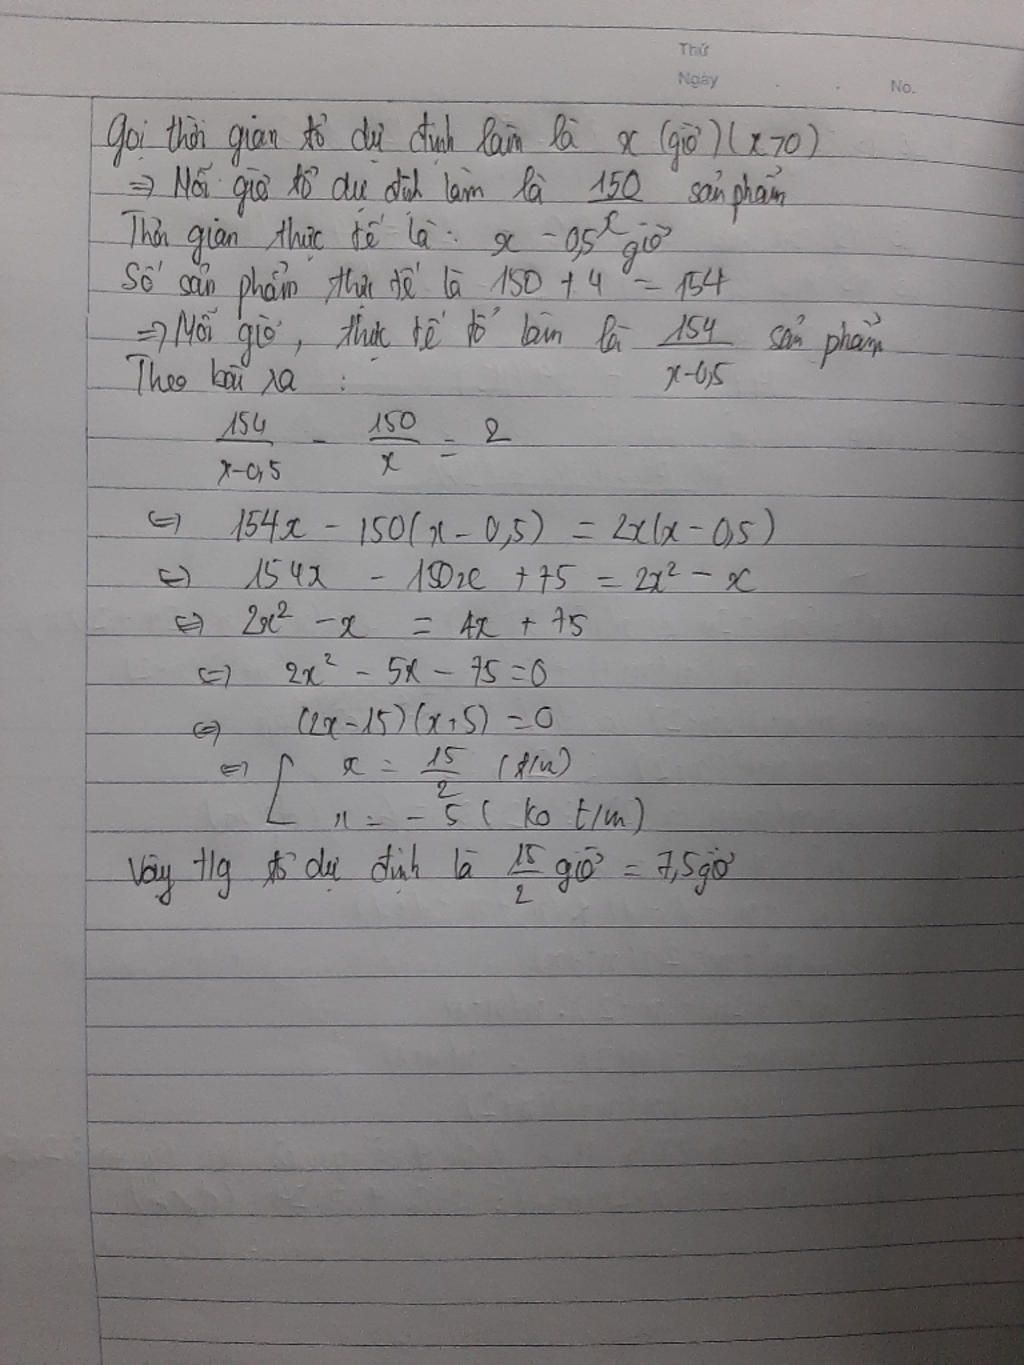 Thứ
Ngày . . No.
Gọi thời gian tổ dự định làm là x (giờ) (x>0)
=> Mỗi giờ tổ dự định làm là 150/x sản phẩm
Thời gian thực tế là : x - 0,5 giờ
Số sản phẩm thực tế là 150 + 4 = 154
=> Mỗi giờ, thực tế tổ làm là 154/(x-0,5) sản phẩm
Theo bài ra :
154/(x-0,5) - 150/x = 2
<=> 154x - 150(x - 0,5) = 2x(x - 0,5)
<=> 154x - 150x + 75 = 2x² - x
<=> 2x² - x = 4x + 75
<=> 2x² - 5x - 75 = 0
<=> (2x-15)(x+5) = 0
<=> [ x = 15/2 (t/m)
x = - 5 ( ko t/m)
Vậy t/g tổ dự định là 15/2 giờ = 7,5 giờ